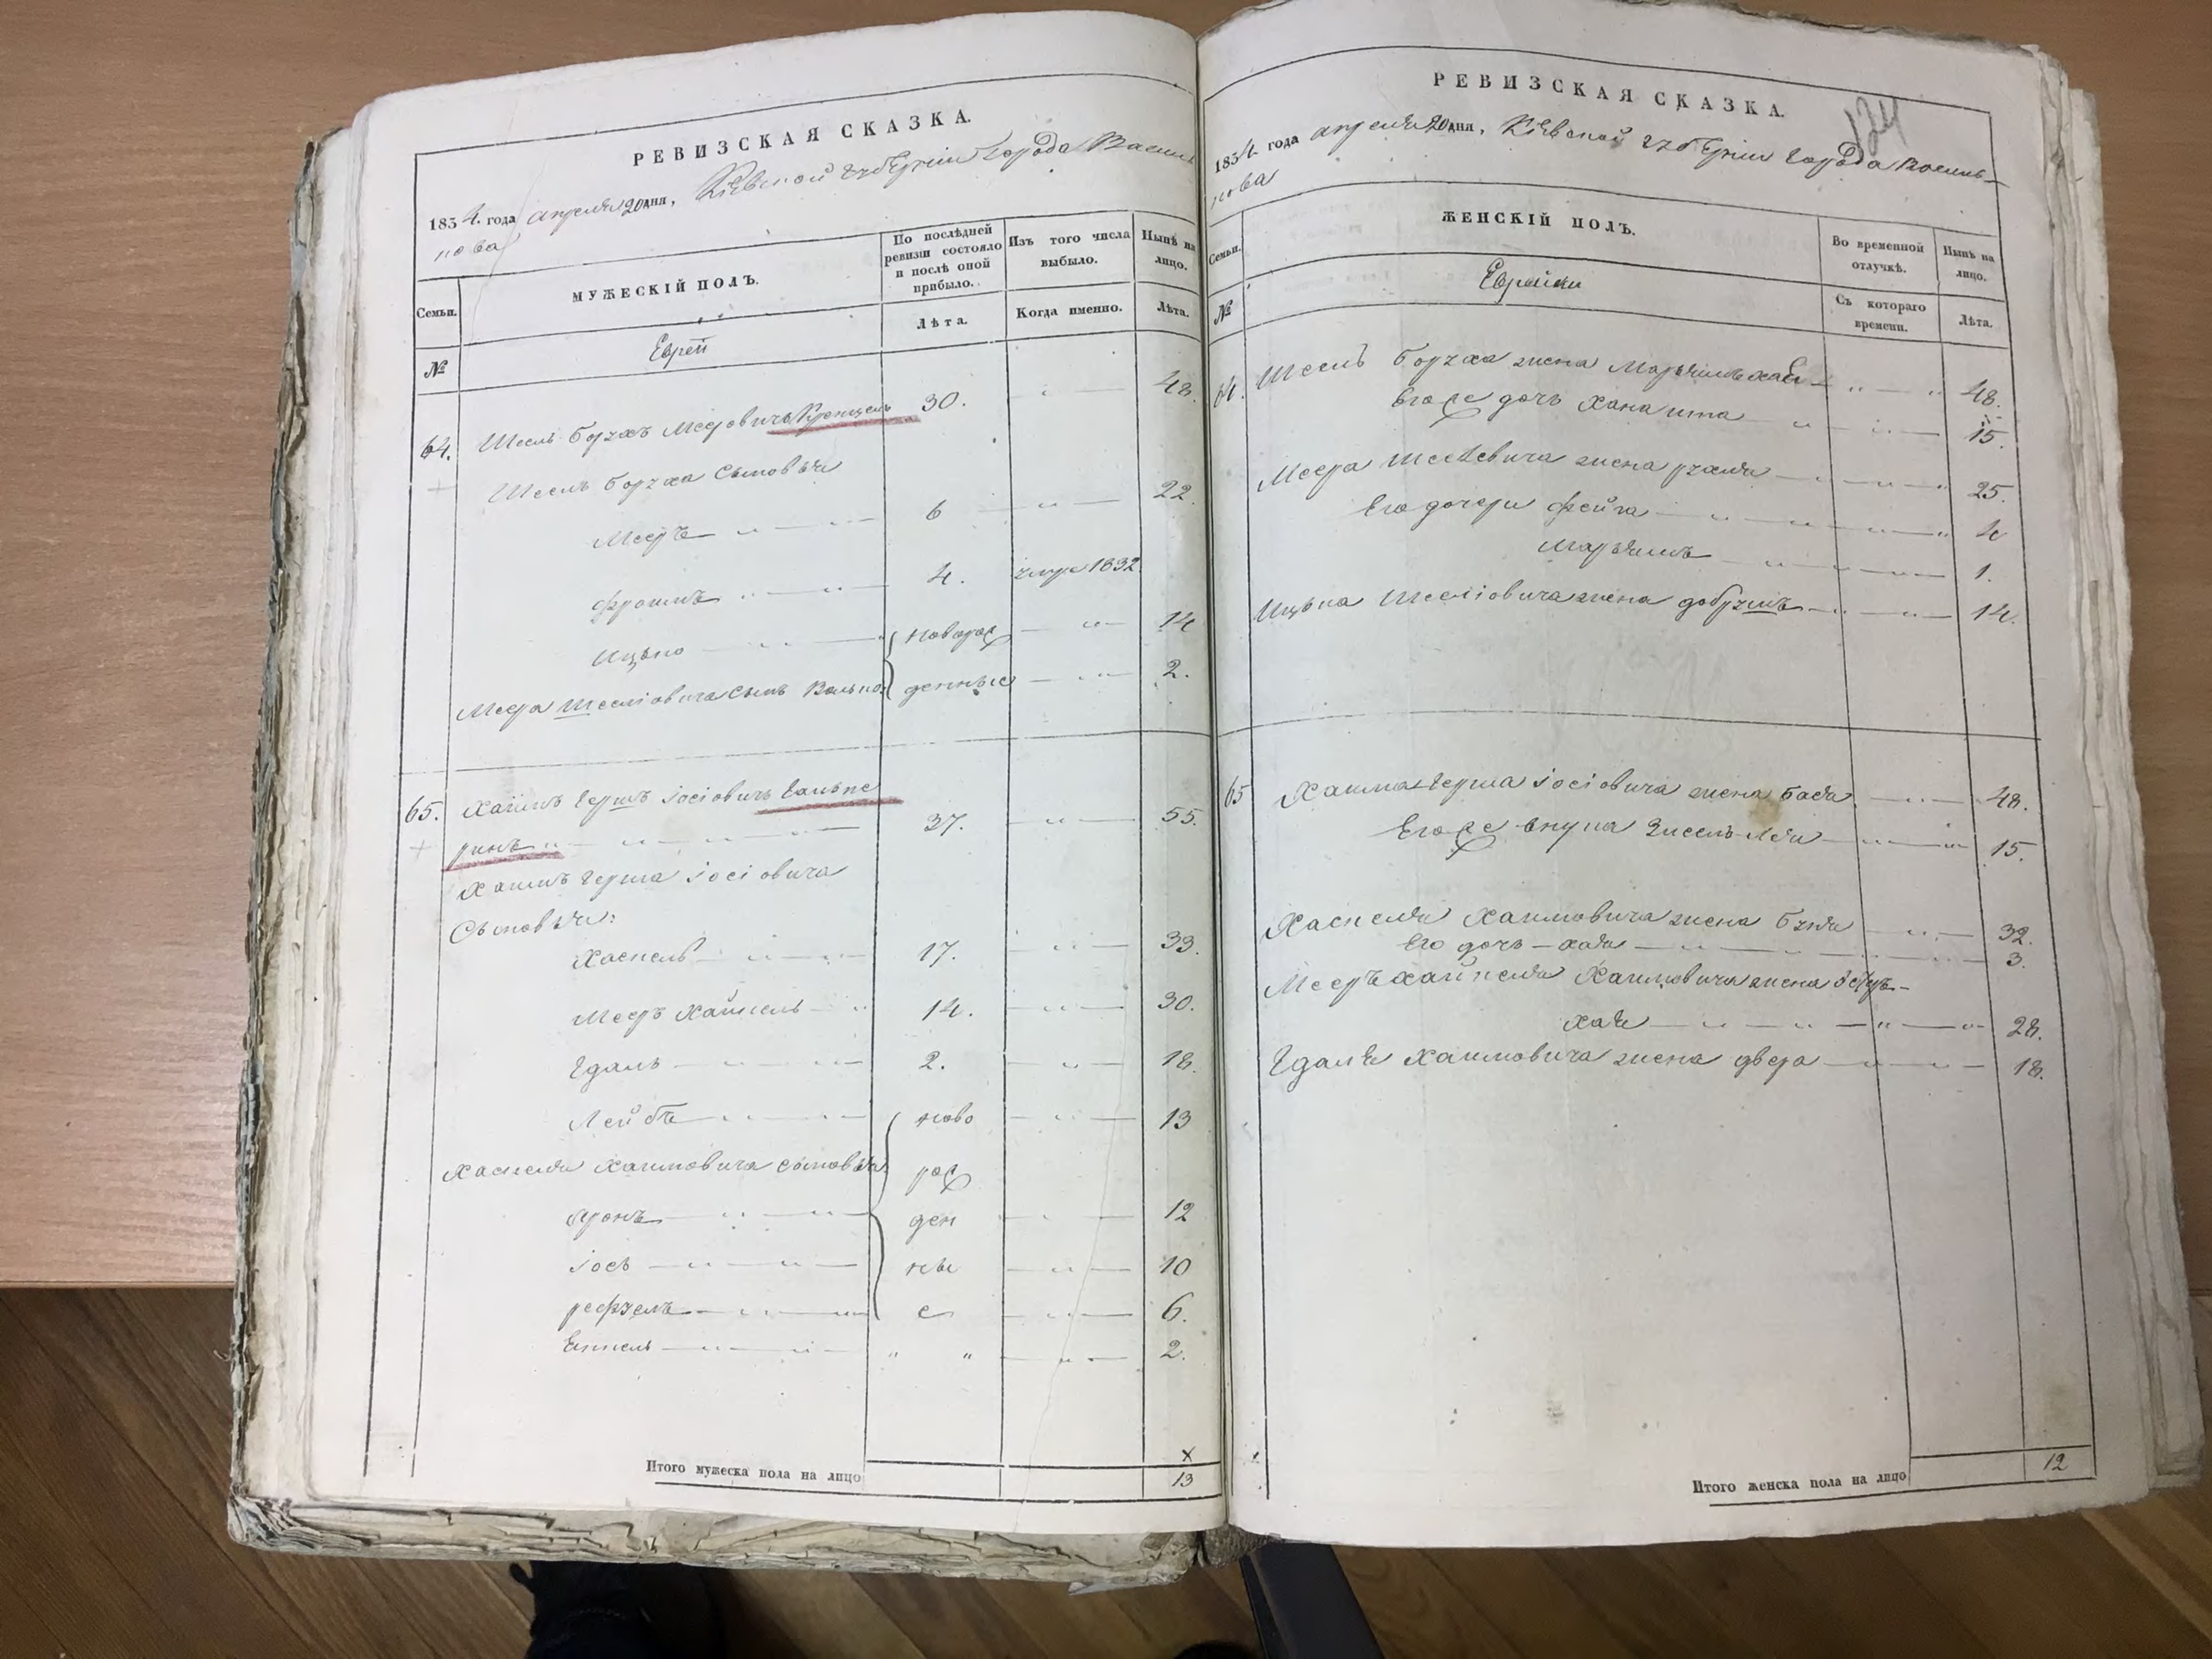 РЕВИЗСКАЯ СКАЗКА.
1834. года апреля 20 дня, Кіевской губерніи города Василь
кова
Семьи.
МУЖЕСКІЙ ПОЛЪ.
По послѣдней ревизіи состояло и послѣ оной прибыло.
Изъ того числа выбыло.
Нынѣ на лицо.
№
Еврей
Лѣта.
Когда именно.
Лѣта.
64. Шселъ Борухъ Мееровичъ 30. „ — 48.
Боруха Сыновья
Мееръ „ — „ 6 „ — 22.
Фроимъ „ — „ 4. умре 1832.
Ицько — „ — новорож — „ — 14
Меера сынъ Волько денные — „ — 2.
65. Хаимъ Гершъ Іосіовичъ Гальпе
ринъ „ — „ — „ 37. — „ — 55.
Хаимъ Герша Іосіовича
Сыновья:
Хаскель — „ — 17. — „ — 33.
Мееръ Хайкель — „ 14. — „ — 30.
Гдаль — „ — „ — 2. — „ — 18.
Лейба — „ — „ — ново — „ — 13
Хаскеля Хаимовича сыновья рож
Аронъ — „ — „ — ден — „ — 12
Іось — „ — „ — ны — „ — 10
рефуелъ — „ — „ — е — „ — 6.
— „ — „ — „ „ — „ — 2.
Итого мужеска пола на лицо
х
13
РЕВИЗСКАЯ СКАЗКА.
124
1834. года апреля 20 дня, Кіевской губерніи города Василь—
кова
Семьи.
ЖЕНСКІЙ ПОЛЪ.
Во временной отлучкѣ.
Нынѣ на лицо.
№
Еврейки
Съ котораго времени.
Лѣта.
64. Боруха жена — „ — „ 48.
Его же дочь Хана — „ — „ — 15.
Меера жена рухля — „ — „ — „ 25.
Его дочери Фейга — „ — „ — „ — „ 4
Марьямъ — „ — „ — 1.
Ицька жена добрушъ — „ — „ — 14.
65 Хаима Герша Іосіовича жена Бася — „ — 48.
Его же внука Зисель Лея — „ — „ 15.
Хаскеля Хаимовича жена Буня — „ — 32.
Его дочь — хая — „ — „ — 3.
Мееръ хайкеля Хаимовича жена
хая — „ — „ — „ — „ 28.
Гдаля Хаимовича жена двера — „ — „ — 18.
Итого женска пола на лицо
12